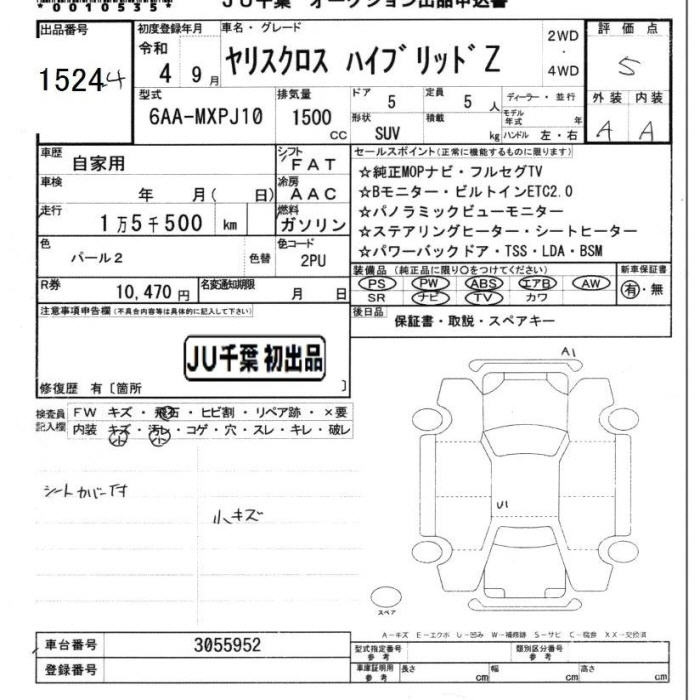 *00105355*
JU千葉 オークション出品申込書
出品番号
15244
初度登録年月
令和
4 9月
車名・グレード
ヤリスクロス ハイブリッドZ
2WD
・
4WD
評価点
5
外装 内装
A A
型式
6AA-MXPJ10
排気量
1500
CC
ドア
5
定員
5 人
形状
SUV
積載
kg
ディーラー・並行
モデル年式 年
ハンドル 左・右
車歴
自家用
シフト
FAT
車検
年 月( 日)
冷房
AAC
走行
1万5千500 km
燃料
ガソリン
色
パール2
色替
色コード
2PU
R券
10,470円
名変通知期限
月 日
セールスポイント(正常に機能するものに限ります)
☆純正MOPナビ・フルセグTV
☆Bモニター・ビルトインETC2.0
☆パノラミックビューモニター
☆ステアリングヒーター・シートヒーター
☆パワーバックドア・TSS・LDA・BSM
装備品(純正品に限り○をつけてください)
PS PW ABS エアB AW
SR ナビ TV カワ
新車保証書
有・無
後日品
保証書・取説・スペアキー
注意事項申告欄(不具合内容等は具体的に記入して下さい)
JU千葉 初出品
修復歴 有〔箇所 〕
検査員記入欄
FW キズ・飛石・ヒビ割・リペア跡・×要
内装 キズ・汚レ・コゲ・穴・スレ・キレ・破レ
小 小
シートカバー付
小キズ
A1
U1
スペア
A-キズ E-エクボ U-凹み W-補修跡 S-サビ C-腐食 XX-交換済
車台番号
3055952
登録番号
型式指定番号
参考
類別区分番号
参考
車庫証明用
参考
長さ cm
幅 cm
高さ cm